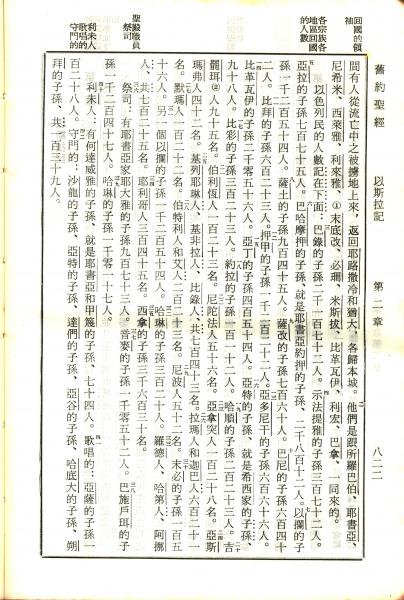 舊約聖經
以斯拉記
第二章
八二二
回國的領袖
各宗族各地區回國的人數
聖殿職員
祭司
利未人
歌唱的
守門的
間有人從流亡中之被擄地上來，返回耶路撒冷和猶大，各歸本城。他們是跟所羅巴伯、耶書亞、
尼希米、西萊雅、利來雅、末底改、必珊、米斯拔、比革瓦伊、利宏、巴拿、一同來的。
以色列民的人數記在下面：巴錄的子孫二千一百七十二人。示法提雅的子孫三百七十二人。
亞拉的子孫七百七十五人。巴哈摩押的子孫、就是耶書亞約押的子孫、二千八百十二人。以攔的子
孫一千二百五十四人。薩土的子孫九百四十五人。薩改的子孫七百六十人。巴尼的子孫六百四十
二人。比拜的子孫六百二十三人。押甲的子孫一千二百二十二人。亞多尼干的子孫六百六十六人。
比革瓦伊的子孫二千零五十六人。亞丁的子孫四百五十四人。亞特的子孫、就是希西家的子孫、
九十八人。比彩的子孫三百二十三人。約拉的子孫一百一十二人。哈順的子孫二百二十三人。吉
羅珥人九十五名。伯利恆人一百二十三名。尼陀法人五十六名。亞拿突人一百二十八名。亞斯
瑪弗人四十二名。基列耶琳人、基非拉人、比錄人、共七百四十三名。拉瑪人和迦巴人六百二十一
名。默瑪人一百二十二名。伯特利人和艾人二百二十三名。尼波人五十二名。末必的子孫一百五
十六人。另一個以攔的子孫一千二百五十四人。哈琳的子孫三百二十人。羅德人、哈第人、阿挪
人、共七百二十五名。耶利哥人三百四十五名。西拿的子孫三千六百三十名。
祭司：有耶書亞家耶大雅的子孫九百七十三人。音麥的子孫一千零五十二人。巴施戶珥的子
孫一千二百四十七人。哈琳的子孫一千零一十七人。
利未人：有何達威雅的子孫、就是耶書亞和甲篾的子孫、七十四人。歌唱的：亞薩的子孫一
百二十八人。守門的：沙龍的子孫、亞特的子孫、達們的子孫、亞谷的子孫、哈底大的子孫、朔
拜的子孫、共一百三十九人。